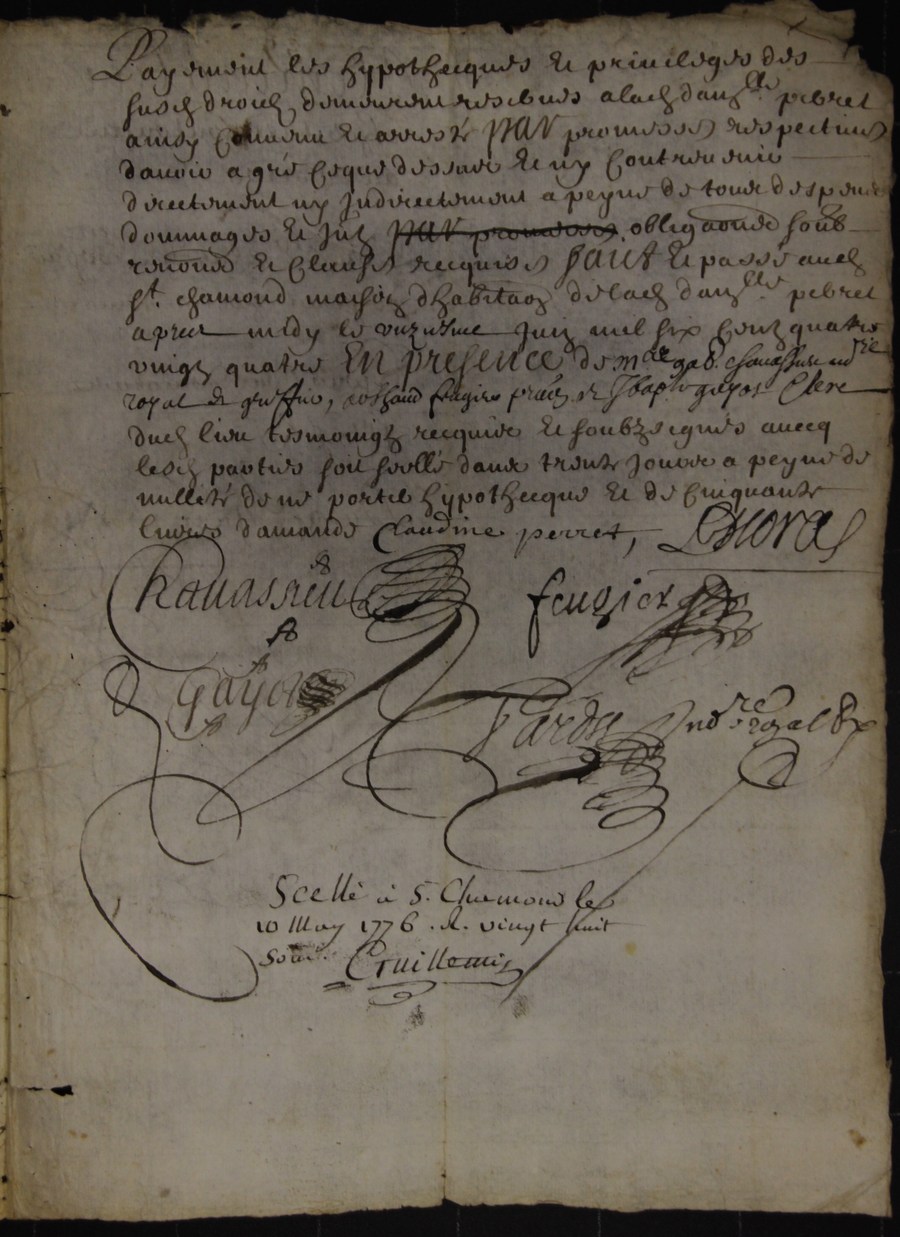 Payement les hypothecques et privileges des
susd droictz demeurent reservés a lad dam.lle perret
ainsy convenu et arresté PAR promesses respectives
davoir a gré ce que dessus et ny contrevenir
directement ny Indirectement a peyne de tous despens
dommages et Int obligaons soub
renons et clauses recquises FAIT et passé aud
St. chamond maison dhabitaon de lad dam.lle perret
apres midy le unziesme Juin mil six centz quatre
vingtz quatre En presence de m.re gab. chavassieu no.re
royal et greffier, feugier pra et Jbap. gayot Clerc
dud lieu tesmoingtz recquis et soubzsignés avecq
lesd parties soit scellé dans trente Jours a peyne de
nullité de ne porter hypothecque et de cinquante
livres damande Claudine perret,
Chavassieu
feugier
Gayot
Tardy no.re royal
Scellé à S. Chamond le
10 May 1776 . R. vingt huit